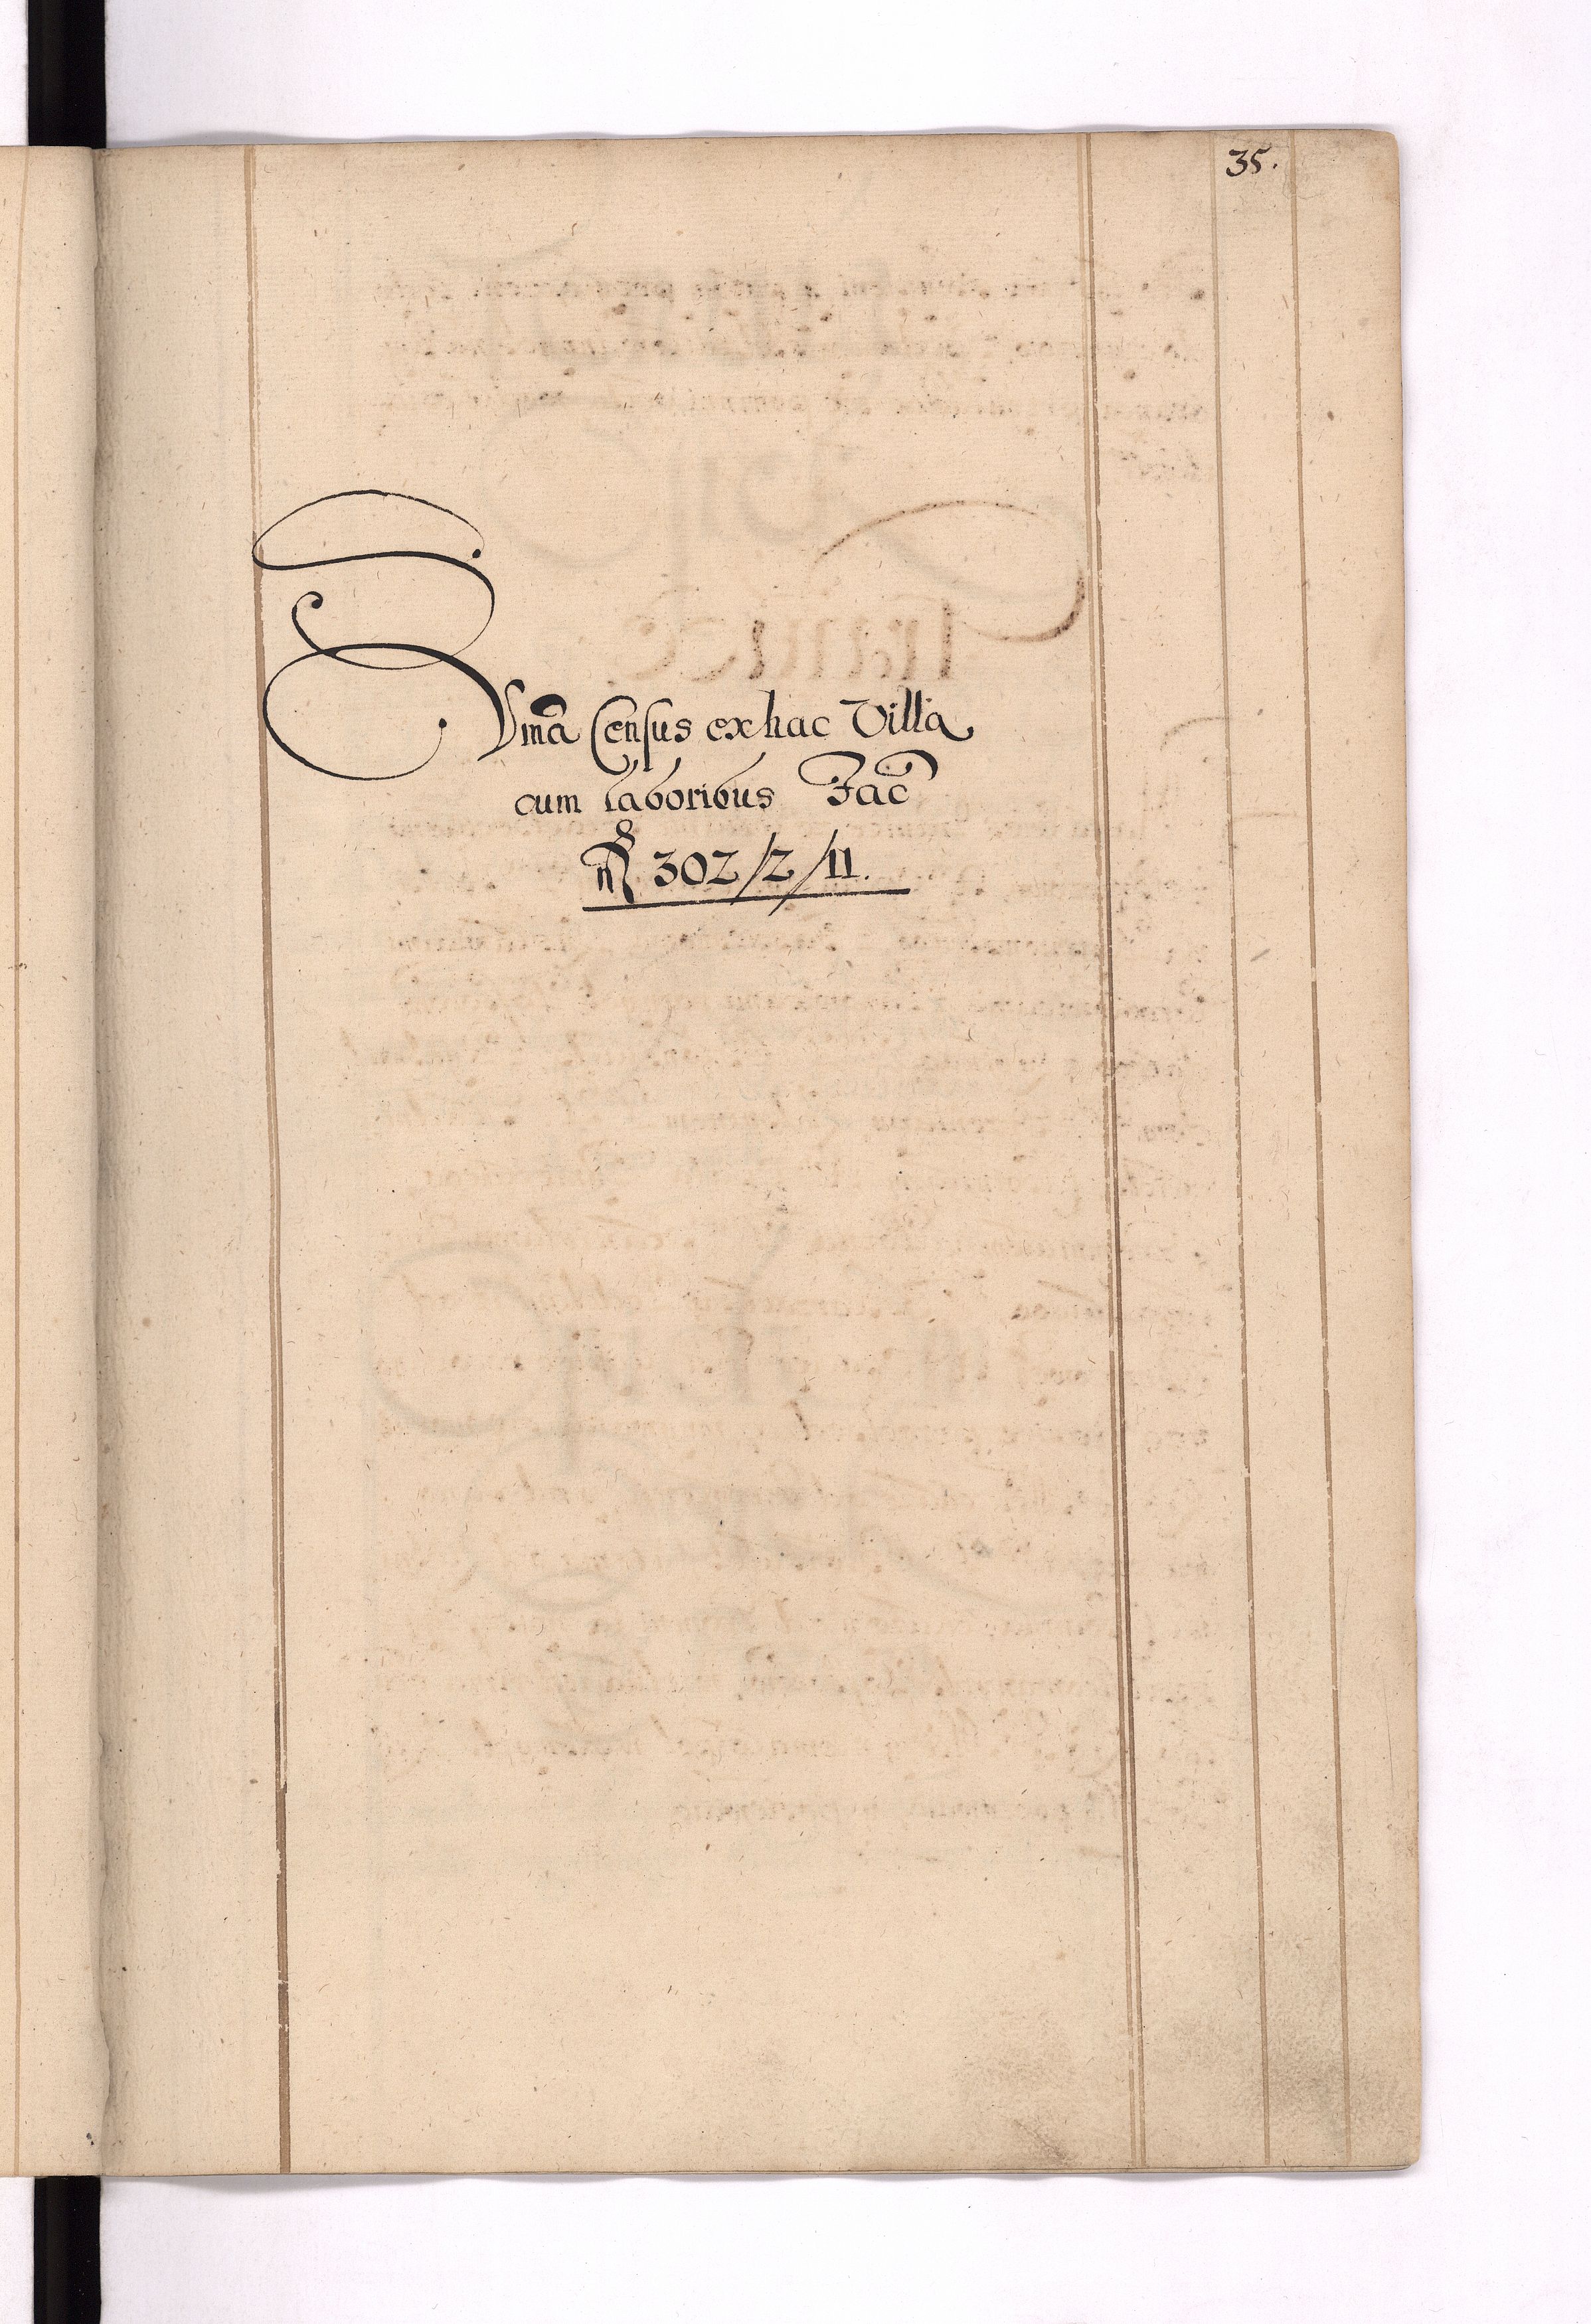 35.
Suma Census ex hac Villa
cum laboribus Fac
302/2/11.